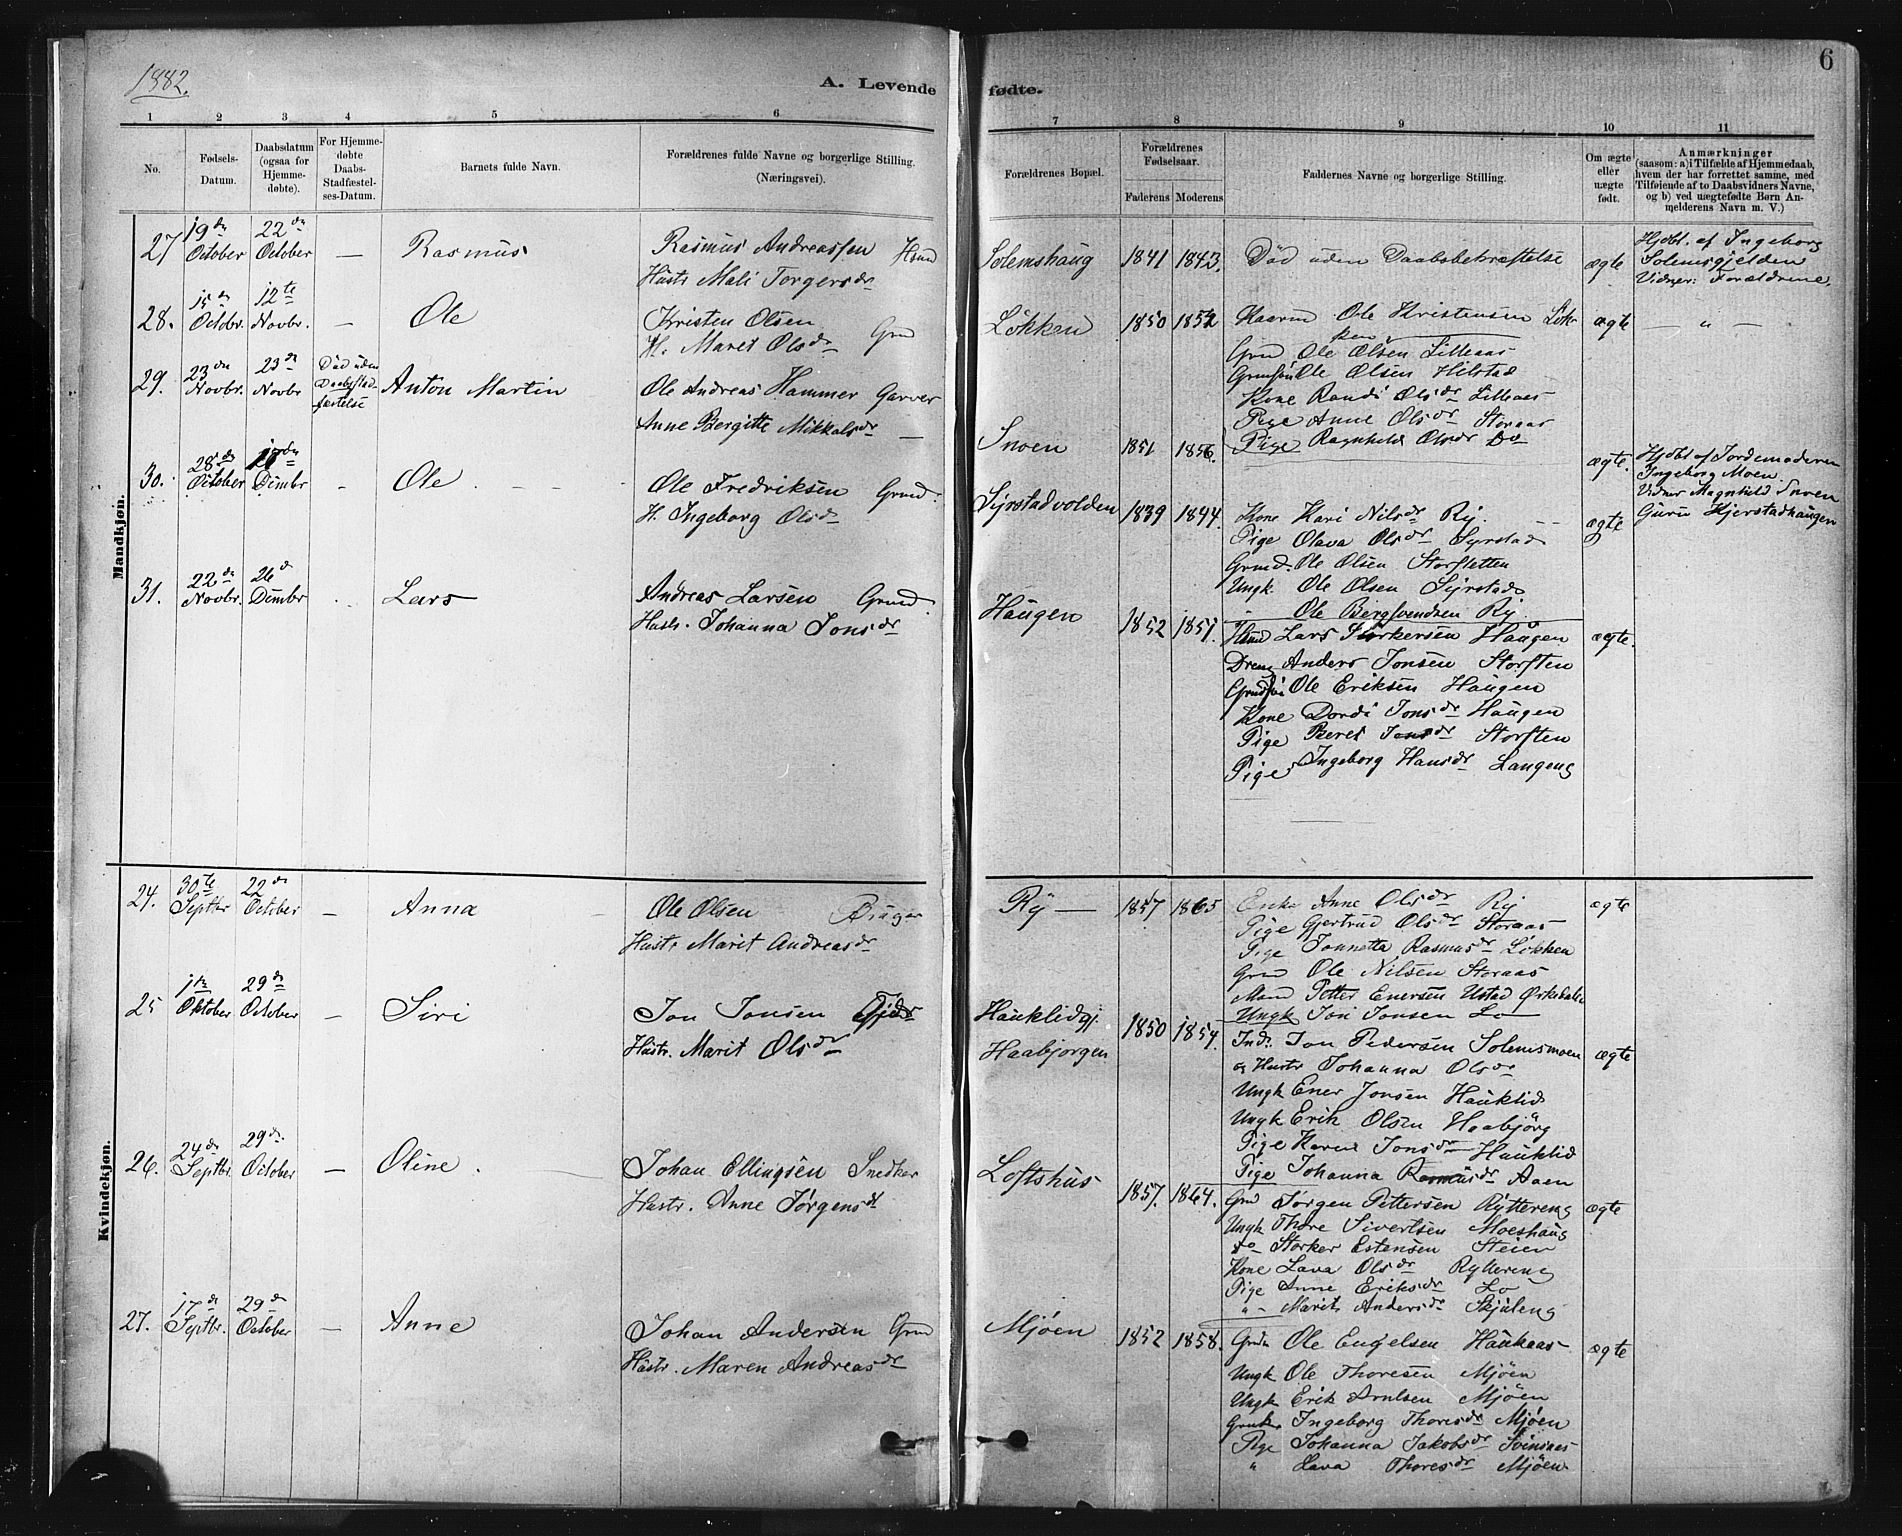 1882.
A. Levende fødte.
6
1 2 3 4 5 6 7 8 9 10 11
No.
Fødsels-Datum.
Daabsdatum (ogsaa for Hjemme-døbte).
For Hjemme-døbte Daabs-Stadfæstel-ses-Datum.
Barnets fulde Navn.
Forældrenes fulde Navne og borgerlige Stilling. (Næringsvei).
Forældrenes Bopæl.
Forældrenes Fødselsaar.
Faderens Moderens
Faddernes Navne og borgerlige Stilling.
Om ægte eller uægte født.
Anmærkninger (saasom: a) i Tilfælde af Hjemmedaab, hvem der har forrettet samme, med Tilføiende af to Daabsvidners Navne, og b) ved uægtefødte Børn An-melderens Navn m. V.)
Mandkjøn.
27 19de October 22de October — Rasmus
Rasmus Andreassen Hmd
Hustr Mali Torgersdr
Solemshaug 1841 1843.
Død uden Daabsbekræftelse
ægte
Hjdbt. af Ingeborg
Solemsgjelden
Vidner: Forældrene.
28. 15de Octobr. 12te Novbr. — Ole
Kristen Olsen Grd
H. Maret Olsdr
Løkken 1850 1852
Ole Kristensen Løk-
ken
Grd Ole Olsen Lilleaas
Grmsøn Ole Olsen Hilstad
Kone Randi Olsdr Lilleaas
Pige Anne Olsdr Storaas
Pige Ragnhild Olsdr Do
ægte — " —
29. 23de Novbr. 23de Novbr Død uden Daabsstad-fæstelse Anton Martin
Ole Andreas Hammer Garver
Anne Bergitte Mikkalsdr —
Snoen 1851 1856.
ægte.
Hjdbt af Jordemoderen
Ingeborg Moen
Vidner Magnhild Snoen
Guru Hjerstadhaugen
30. 28de October Dcmbr - Ole
Ole Fredriksen Grmd.
H. Ingeborg Olsdr
Syrstadvolden 1839 1844.
Kone Kari Nilsdr Ry.
Pige Olava Olsdr Syrstad
Grmd. Ole Olsen Storsletten
Ungk Ole Olsen Syrstad
Ole Bergsvendsen Ry
ægte
31. 22de Novbr. 26d Dcmbr Lars
Andreas Larsen Grmd.
Hustr. Johanna Jonsdr
Haugen 1852 1851.
Hmd Lars Storkersen Haugen
Dreng Anders Jonsen Storsten
Grmdsøn Ole Eriksen Haugen
Kone Dordi Jonsdr Haugen
Pige Beret Jonsdr Storsten
Pige Ingeborg Hansdr Langeng
ægte.
Kvindekjøn.
24. 30te Septbr 22de October — Anna
Ole Olsen Bruger
Hustr Marit Andreasdr
Ry — 1857 1865
Enke Anne Olsdr Ry
Pige Gjertrud Olsdr Storaas
Pige Jonnetta Rasmusdr Løkken
Grd Ole Nilsen Storaas
Mand Petter Enersen Ustad Ørkedalen
Ungk Jon Jonsen Lo
ægte
25 1ste Oktober 29de October — Siri
Jon Jonsen
Hustr. Marit Olsdr
Hauklidgj.
Haabjorgen
1850 1854.
Ind. Jon Pedersen Solemsmoen
og Hustr Johanna Olsdr
Ungk Ener Jonsen Hauklid
Ungk Erik Olsen Haabjørg
Pige Karen Jonsdr Hauklid
Pige Johanna Rasmusdr Aaen
ægte
26. 24de Septbr. 29de October — Oline
Johan Ellingsen Snedker
Hustr. Anne Jørgensdt
Loftshus 1857. 1864.
Grd Jørgen Pettersen Ryttereng
Ungk Thore Sivertsen Moeshaug
do Storker Estensen Steien
Kone Lava Olsdr Ryttereng
Pige Anne Eriksdr Lo
" - Marit Andersdr Skjuleng
ægte
27. 17de Septbr. 29de October — Anne
Johan Andersen Grd
Hustr. Maren Andreasdr
Mjøen 1852 1858.
Grdm Ole Engelsen Haukaas
Ungk Ole Thoresen Mjøen
Ungk Erik Arntsen Mjøen
Ingeborg Thoresdr Mjøen
Pige Johanna Jakobsdr Svinsaas
" Lava Thoresdr Mjøen
ægte